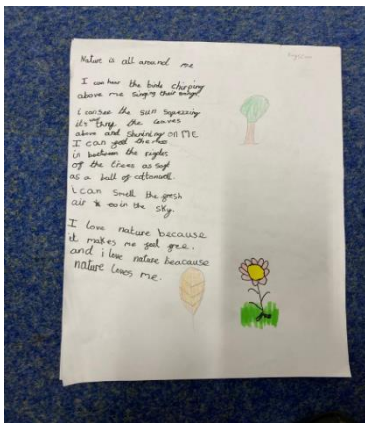 Nature is all around me
I can hear the birds chirping
above me singing their songs
i can see the sun squeezing
its way throg the leaves
above and shining on ME
I can feel the
in between the
of the trees as soft
as a ball of cottonwool.
i can smell the fresh
air in the sky.
I love nature because
it makes me feel free.
and i love nature beacause
nature loves me.